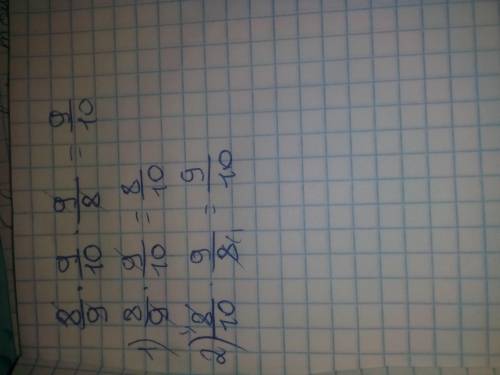 8/9 · 9/10 · 9/8 = 9/10
1) 8/9 · 9/10 = 8/10
2) 8/10 · 9/8 = 9/10